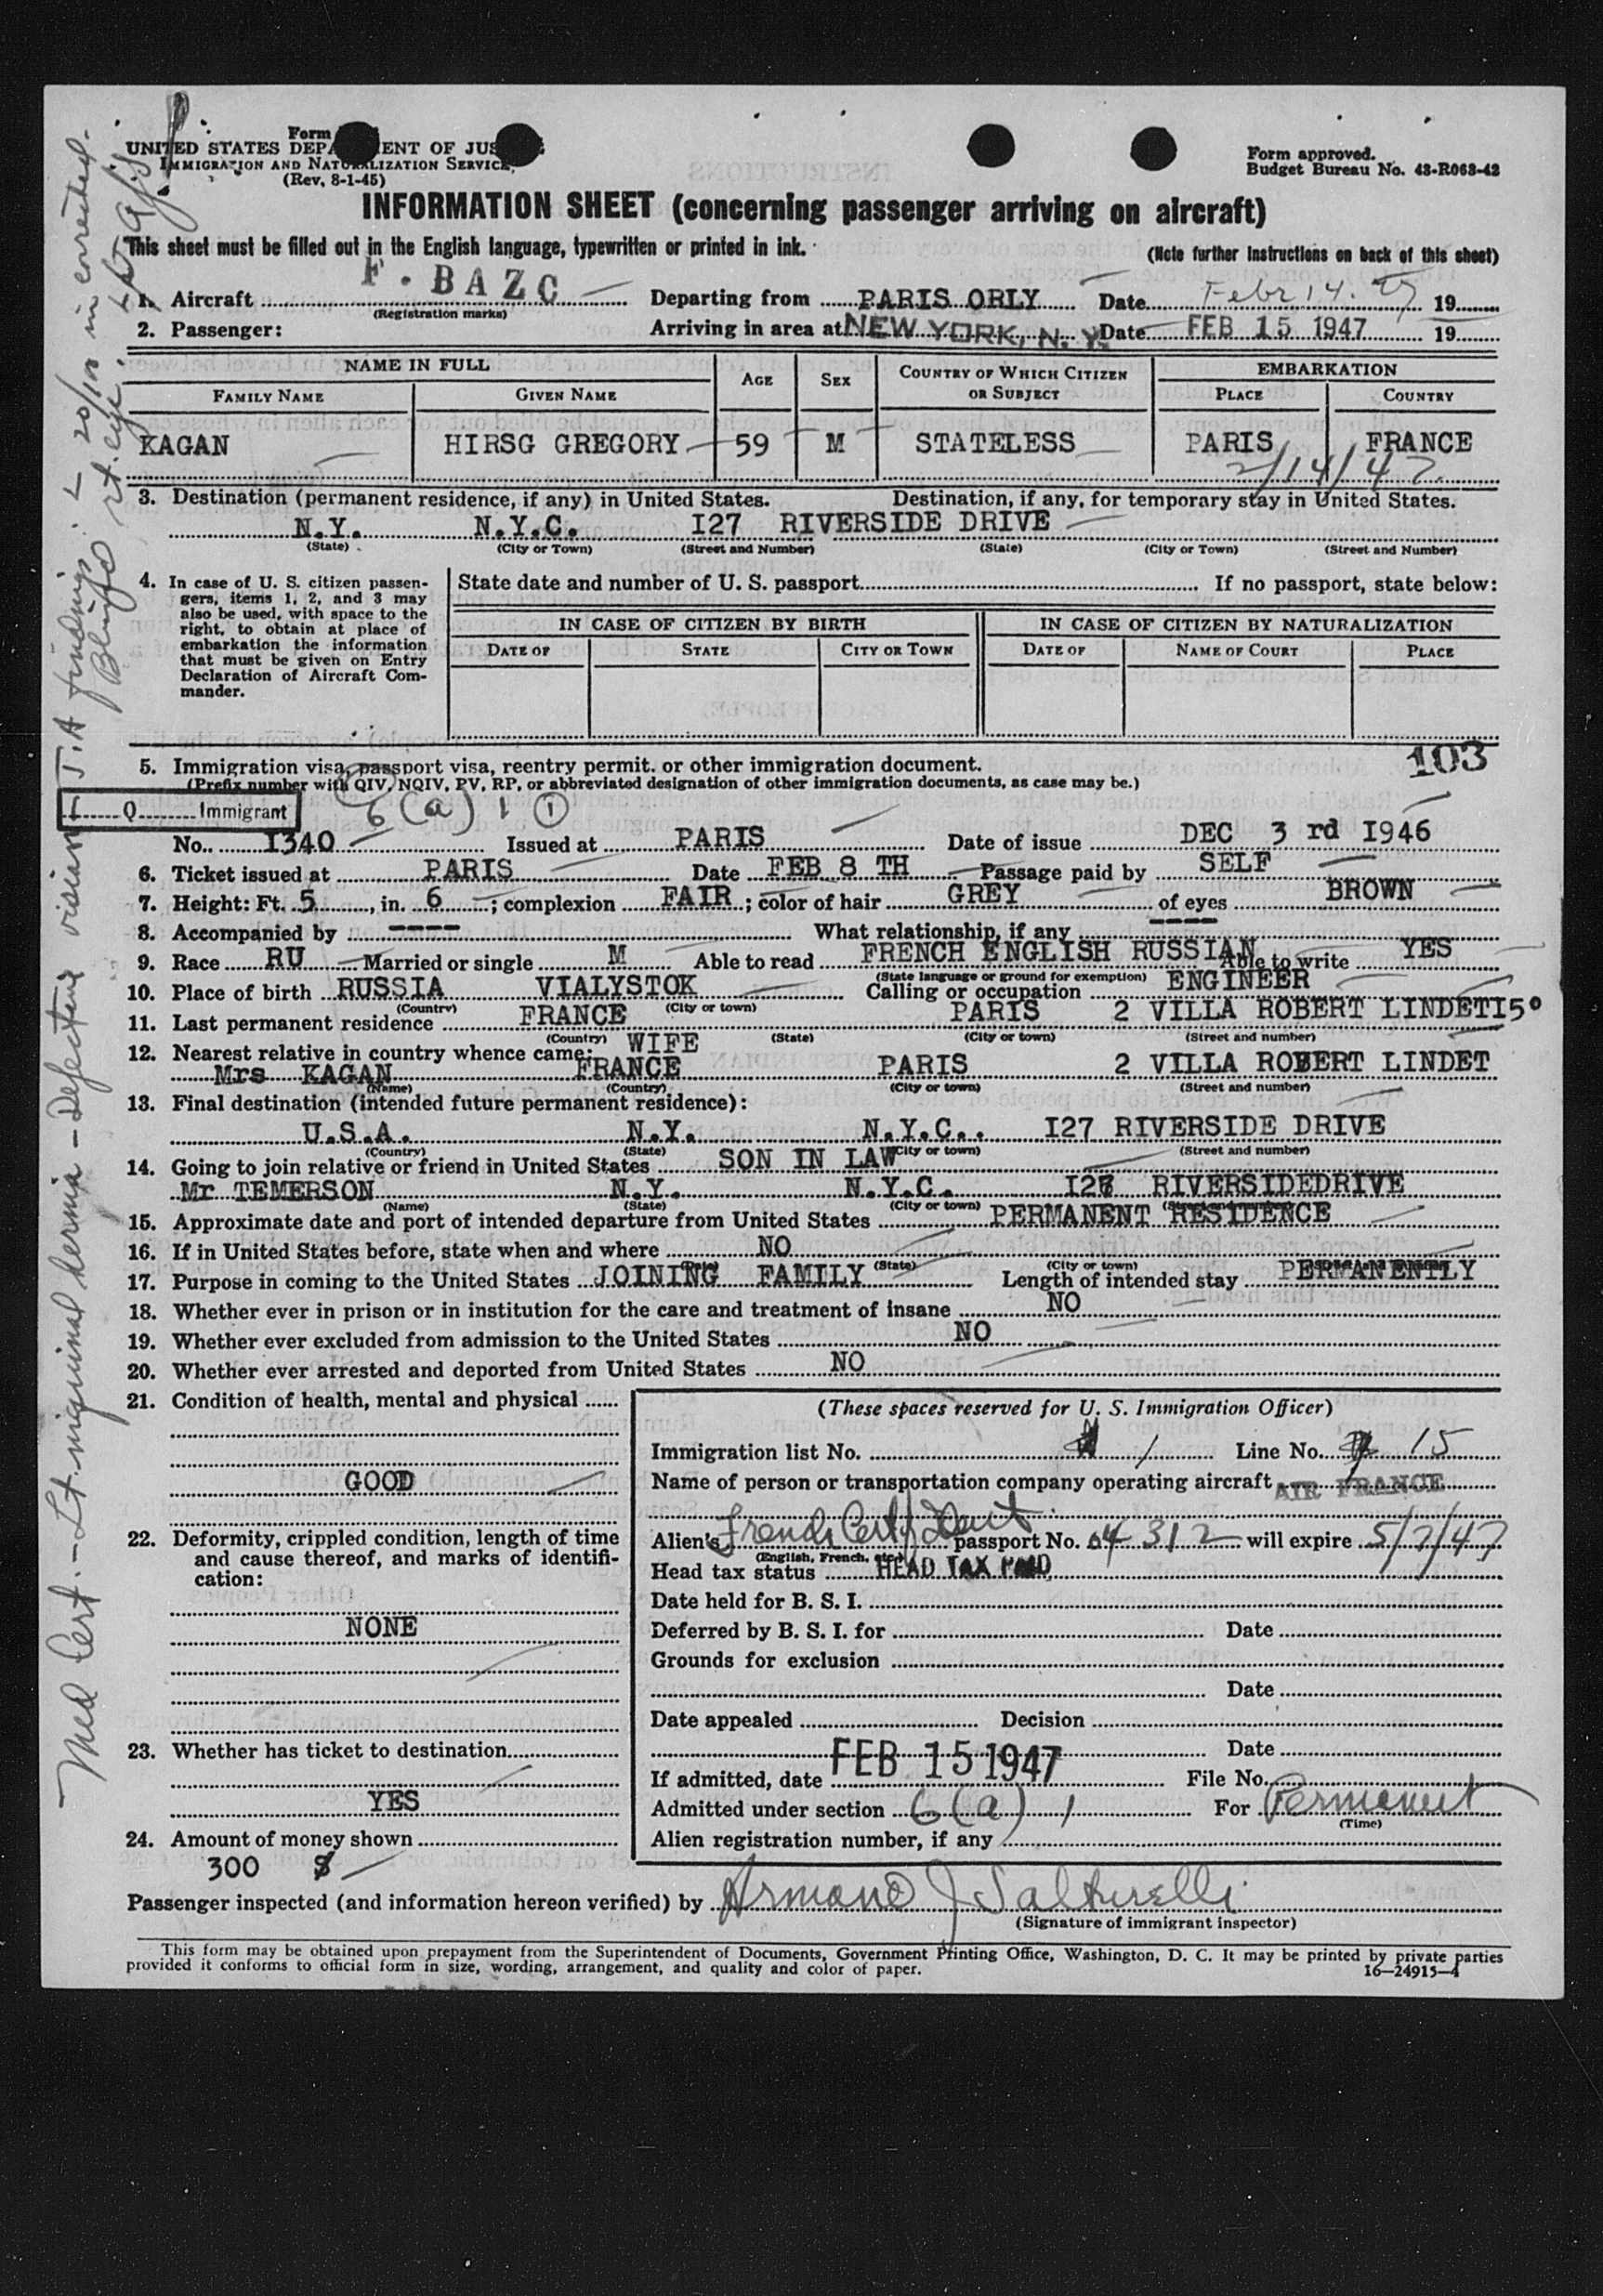 Form
UNITED STATES DEPA ENT OF JUS
IMMIGRATION AND NATURALIZATION SERVICE
(Rev. 8-1-45)
Form approved.
Budget Bureau No. 43-R063-42
INFORMATION SHEET (concerning passenger arriving on aircraft)
This sheet must be filled out in the English language, typewritten or printed in ink.
(Note further instructions on back of this sheet)
1. Aircraft F. BAZC Departing from PARIS ORLY Date Febr 14. 47 19
(Registration marks)
2. Passenger: Arriving in area at NEW YORK, N. Y. Date FEB 15 1947 19
NAME IN FULL AGE SEX COUNTRY OF WHICH CITIZEN OR SUBJECT EMBARKATION
FAMILY NAME GIVEN NAME PLACE COUNTRY
KAGAN HIRSG GREGORY 59 M STATELESS PARIS FRANCE
2/14/47
3. Destination (permanent residence, if any) in United States. Destination, if any, for temporary stay in United States.
N.Y. N.Y.C. I27 RIVERSIDE DRIVE
(State) (City or Town) (Street and Number) (State) (City or Town) (Street and Number)
4. In case of U. S. citizen passen-
gers, items 1, 2, and 3 may
also be used, with space to the
right, to obtain at place of
embarkation the information
that must be given on Entry
Declaration of Aircraft Com-
mander.
State date and number of U. S. passport If no passport, state below:
IN CASE OF CITIZEN BY BIRTH IN CASE OF CITIZEN BY NATURALIZATION
DATE OF STATE CITY OR TOWN DATE OF NAME OF COURT PLACE
103
5. Immigration visa, passport visa, reentry permit, or other immigration document.
(Prefix number with QIV, NQIV, PV, RP, or abbreviated designation of other immigration documents, as case may be.)
Q Immigrant 6(a) 1 1
No. I340 Issued at PARIS Date of issue DEC 3 rd I946
6. Ticket issued at PARIS Date FEB 8 TH Passage paid by SELF
7. Height: Ft. 5, in. 6; complexion FAIR; color of hair GREY of eyes BROWN
8. Accompanied by ---- What relationship, if any ----
9. Race RU Married or single M Able to read FRENCH ENGLISH RUSSIAN Able to write YES
(State language or ground for exemption)
10. Place of birth RUSSIA VIALYSTOK Calling or occupation ENGINEER
(Country) (City or town)
11. Last permanent residence FRANCE PARIS 2 VILLA ROBERT LINDETI5°
(Country) (State) (City or town) (Street and number)
12. Nearest relative in country whence came: WIFE
Mrs KAGAN FRANCE PARIS 2 VILLA ROBERT LINDET
(Name) (Country) (City or town) (Street and number)
13. Final destination (intended future permanent residence):
U.S.A. N.Y. N.Y.C.. I27 RIVERSIDE DRIVE
(Country) (State) (City or town) (Street and number)
14. Going to join relative or friend in United States SON IN LAW
Mr TEMERSON N.Y. N.Y.C. I27 RIVERSIDEDRIVE
(Name) (State) (City or town)
15. Approximate date and port of intended departure from United States PERMANENT RESIDENCE
16. If in United States before, state when and where NO
(State) (City or town)
17. Purpose in coming to the United States JOINING FAMILY Length of intended stay PERMANENTLY
18. Whether ever in prison or in institution for the care and treatment of insane NO
19. Whether ever excluded from admission to the United States NO
20. Whether ever arrested and deported from United States NO
21. Condition of health, mental and physical
GOOD
22. Deformity, crippled condition, length of time
and cause thereof, and marks of identifi-
cation:
NONE
23. Whether has ticket to destination
YES
24. Amount of money shown
300 $
(These spaces reserved for U. S. Immigration Officer)
Immigration list No. 1 Line No. 15
Name of person or transportation company operating aircraft AIR FRANCE
Alien's French Cert of Ident passport No. 04312 will expire 5/7/47
(English, French, etc.)
Head tax status HEAD TAX PAID
Date held for B. S. I.
Deferred by B. S. I. for Date
Grounds for exclusion
Date
Date appealed Decision
Date
If admitted, date FEB 15 1947 File No.
Admitted under section 6(a) 1 For Permanent
(Time)
Alien registration number, if any
Passenger inspected (and information hereon verified) by Armand J Salturelli
(Signature of immigrant inspector)
This form may be obtained upon prepayment from the Superintendent of Documents, Government Printing Office, Washington, D. C. It may be printed by private parties
provided it conforms to official form in size, wording, arrangement, and quality and color of paper.
16—24915-4
Med Cert. - Lt. inguinal hernia - Defective vision - I.A findings: L 20/100 in corrected.
Blind rt. eye.